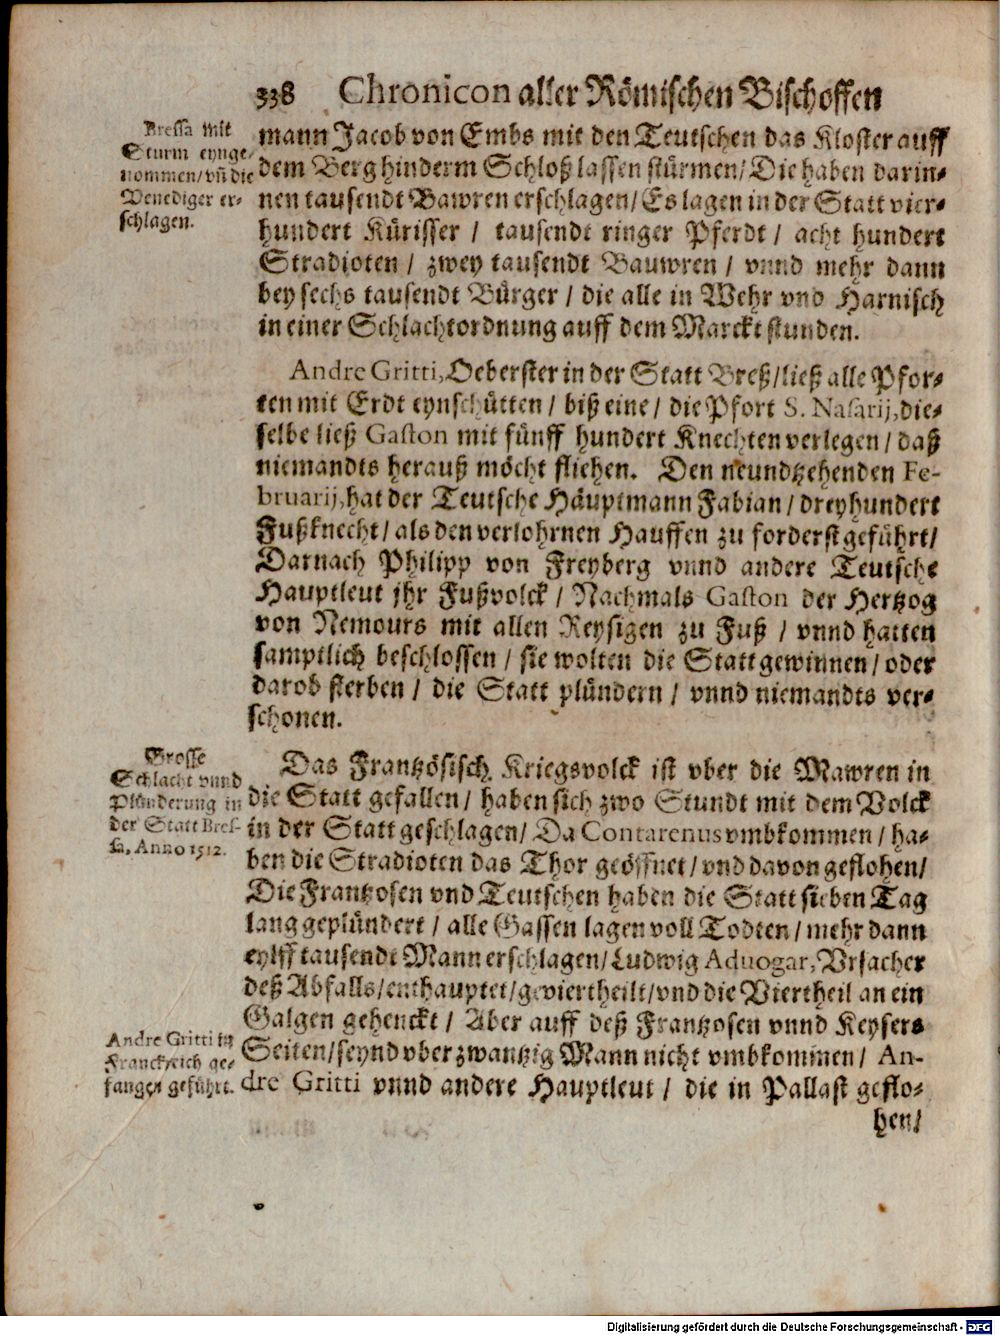 338 Chronicon aller Römischen Bischoffen
Bressa mit
Sturm eynge-
nommen/ vñ die
Venediger er-
schlagen.
mann Jacob von Embs mit den Teutschen das Kloster auff
dem Berg hinderm Schloß lassen stürmen/ Die haben darin-
nen tausendt Bawren erschlagen/ Es lagen in der Statt vier-
hundert Kürisser / tausendt ringer Pferdt / acht hundert
Stradioten / zwey tausendt Bauwren / vnnd mehr dann
bey sechs tausendt Bürger / die alle in Wehr vnd Harnisch
in einer Schlachtordnung auff dem Marckt stunden.
Andre Gritti, Oeberster in der Statt Breß/ ließ alle Pfor-
ten mit Erdt eynschütten / biß eine / die Pfort S. Nasarij, die-
selbe ließ Gaston mit fünff hundert Knechten verlegen / daß
niemandts herauß möcht fliehen. Den neundtzehenden Fe-
bruarij, hat der Teutsche Häuptmann Fabian / dreyhundert
Fußknecht / als den verlohrnen Hauffen zu forderst geführt/
Darnach Philipp von Freyberg vnnd andere Teutsche
Hauptleut jhr Fußvolck / Nachmals Gaston der Hertzog
von Nemours mit allen Reysigen zu Fuß / vnnd hatten
samptlich beschlossen / sie wolten die Statt gewinnen / oder
darob sterben / die Statt plündern / vnnd niemandts ver-
schonen.
Grosse
Schlacht vnnd
Plünderung in
der Statt Bres-
sa, Anno 1512.
Das Frantzösisch Kriegsvolck ist vber die Mawren in
die Statt gefallen / haben sich zwo Stundt mit dem Volck
in der Statt geschlagen / Da Contarenus vmbkommen / ha-
ben die Stradioten das Thor geöffnet / vnd davon geflohen/
Die Frantzosen vnd Teutschen haben die Statt sieben Tag
lang geplündert / alle Gassen lagen voll Todten / mehr dann
eylff tausendt Mann erschlagen / Ludwig Aduogar, Vrsacher
deß Abfalls / enthauptet / geviertheilt / vnd die Viertheil an ein
Galgen gehenckt / Aber auff deß Frantzosen vnnd Keysers
Seiten / seynd vber zwantzig Mann nicht vmbkommen / An-
dre Gritti vnnd andere Hauptleut / die in Pallast geflo-
Andre Gritti in
Franckreich ge-
fangen geführt.
hen/
Digitalisierung gefördert durch die Deutsche Forschungsgemeinschaft - DFG